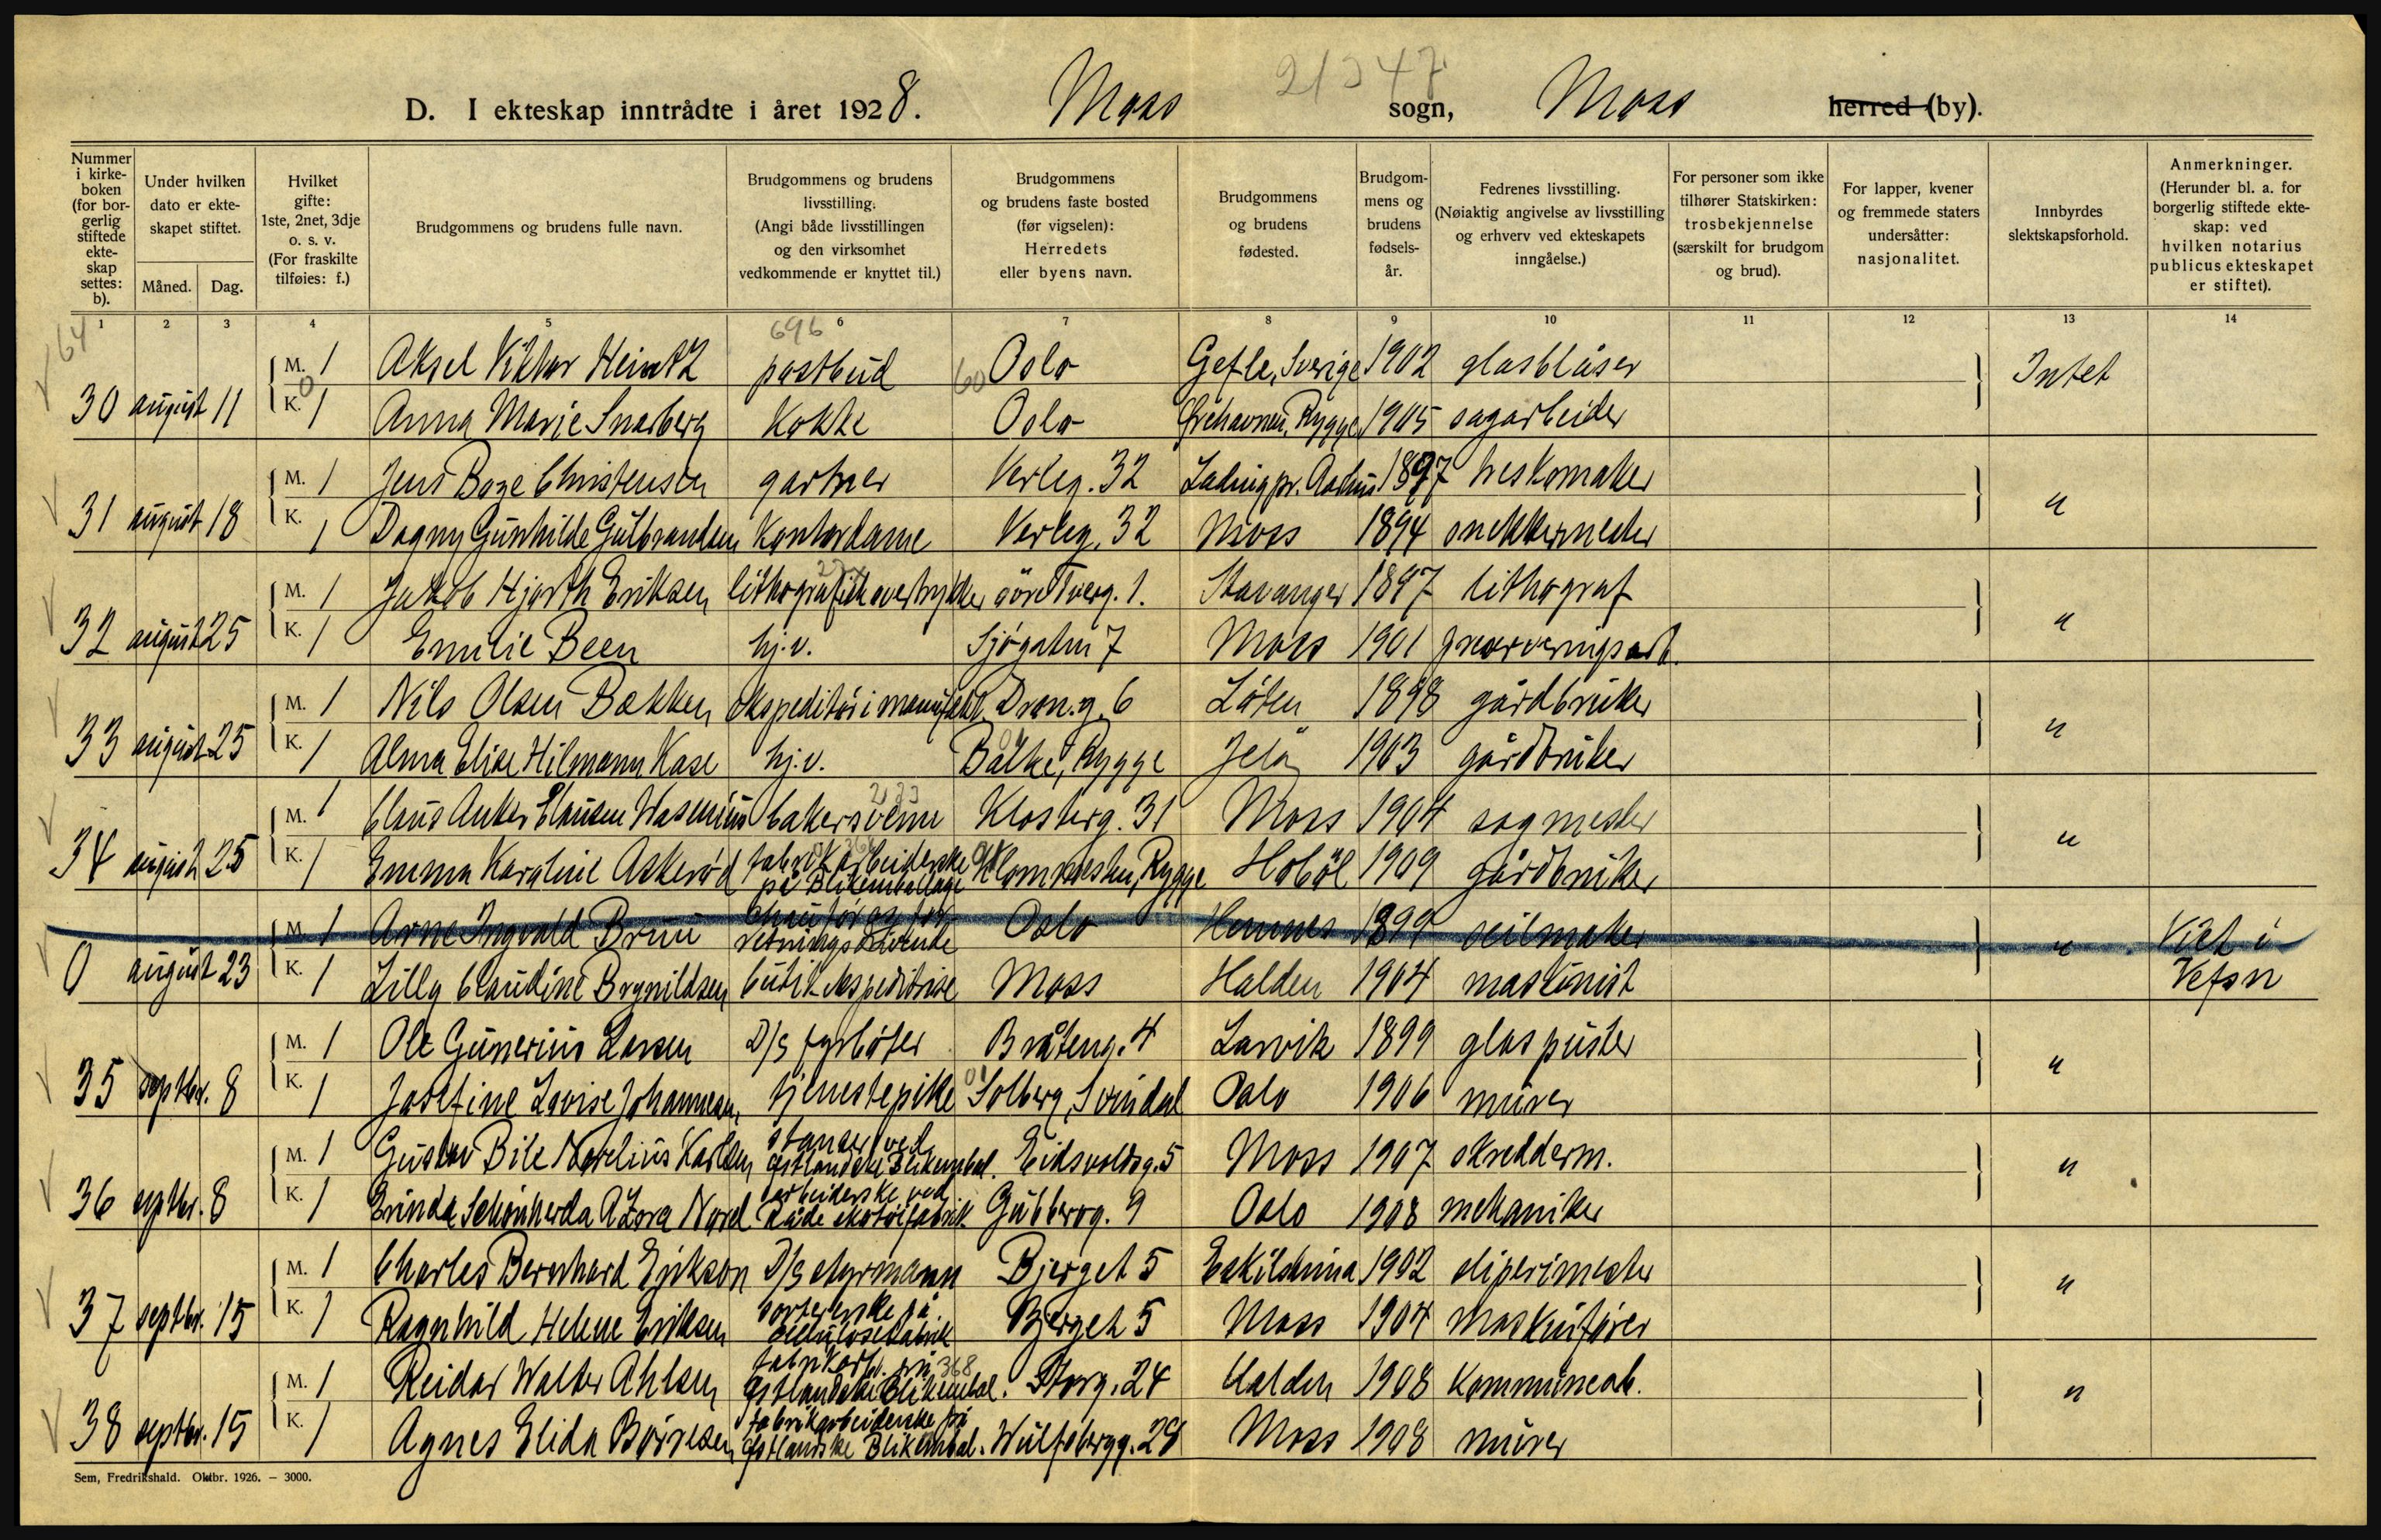 21347
D. I ekteskap inntrådte i året 1928. Moss sogn, Moss herred (by).
Nummer i kirke-boken (for bor-gerlig stiftede ekte-skap settes: b).
Under hvilken dato er ekte-skapet stiftet.
Måned. Dag.
Hvilket gifte: 1ste, 2net, 3dje o. s. v. (For fraskilte tilføies: f.)
Brudgommens og brudens fulle navn.
Brudgommens og brudens livsstilling. (Angi både livsstillingen og den virksomhet vedkommende er knyttet til.)
Brudgommens og brudens faste bosted (før vigselen): Herredets eller byens navn.
Brudgommens og brudens fødested.
Brudgom-mens og brudens fødsels-år.
Fedrenes livsstilling. (Nøiaktig angivelse av livsstilling og erhverv ved ekteskapets inngåelse.)
For personer som ikke tilhører Statskirken: trosbekjennelse (særskilt for brudgom og brud).
For lapper, kvener og fremmede staters undersåtter: nasjonalitet.
Innbyrdes slektskapsforhold.
Anmerkninger. (Herunder bl. a. for borgerlig stiftede ekte-skap: ved hvilken notarius publicus ekteskapet er stiftet).
1 2 3 4 5 6 7 8 9 10 11 12 13 14
64 696
M. 1 Aksel Viktor Heintz postbud Oslo Gefle, Sverige 1902 glasblåser Intet
30 august 11 K. 1 Anna Marie Snarberg Kokke 60 Oslo Rygge 1905 sagarbeider
M. 1 Jens Boye Christensen gartner Verleg. 32 Lading pr. Aarhus 1897 treskomaker "
31 august 18 K. 1 Dagny Gunhilde Gulbrandsen Kontordame Verleg. 32 Moss 1894 snekkermester
M. 1 Jakob Hjorth Eriksen lithografisk overtrykker øvre Tverg. 1. Stavanger 1897 lithograf "
32 august 25 K. 1 Emilie Been hj.v. Sjøgaten 7 Moss 1901
M. 1 Nils Olsen Bakken ekspeditør i manufakt. Dron.g. 6 Løten 1898 gårdbruker "
33 august 25 K. 1 Alma Elise Hilmann Kase hj.v. Båtke, Rygge Jeløy 1903 gårdbruker
M. 1 Claus Anker Clausen Wasenius bakersvenn Klosterg. 31 Moss 1904 sagmester "
34 august 25 K. 1 Emma Karoline Askerød fabrikarbeiderske på Blikemballage Rygge Hobøl 1909 gårdbruker
M. 1 Arne Ingvald Bruu chauffør og forretningsdrivende Oslo Hemnes 1899 seilmaker " Viet i
0 august 23 K. 1 Lilly Claudine Brynildsen butikekspeditrise Moss Halden 1904 maskinist Vefsn
M. 1 Ole Gunerius Larsen D/s fyrbøter Bråteng. 4 Larvik 1899 glaspuster "
35 septbr. 8 K. 1 Josefine Lovise Johannesen, tjenestepike Solberg, Svindal Oslo 1906 murer
M. 1 Gustav Bile Norelius Karlsen stanser ved Østlandske Blikembal. Eidsvoldsg. 5 Moss 1907 skredderm. "
36 septbr. 8 K. 1 Erinda Schönherda A Zora Nord arbeiderske ved Råde skotøifabrik Gubberog. 9 Oslo 1908 mekaniker
M. 1 Charles Bernhard Erikson D/s styrmann Bjerget 5 Eskilstuna 1902 sliperimester "
37 septbr. 15 K. 1 Ragnhild Helene Eriksen sortererske på cellulosefabrik Bjerget 5 Moss 1904 maskinfører
M. 1 Reidar Walter Ahlsen fabrikarb. på 368 Østlandske Blikembal. Storg. 24 Halden 1908 Kommunearb. "
38 septbr. 15 K. 1 Agnes Elida Børresen fabrikarbeiderske på Østlandske Blikembal. Wulfsbergg. 28 Moss 1908 murer
Sem, Fredrikshald. Oktbr. 1926. — 3000.